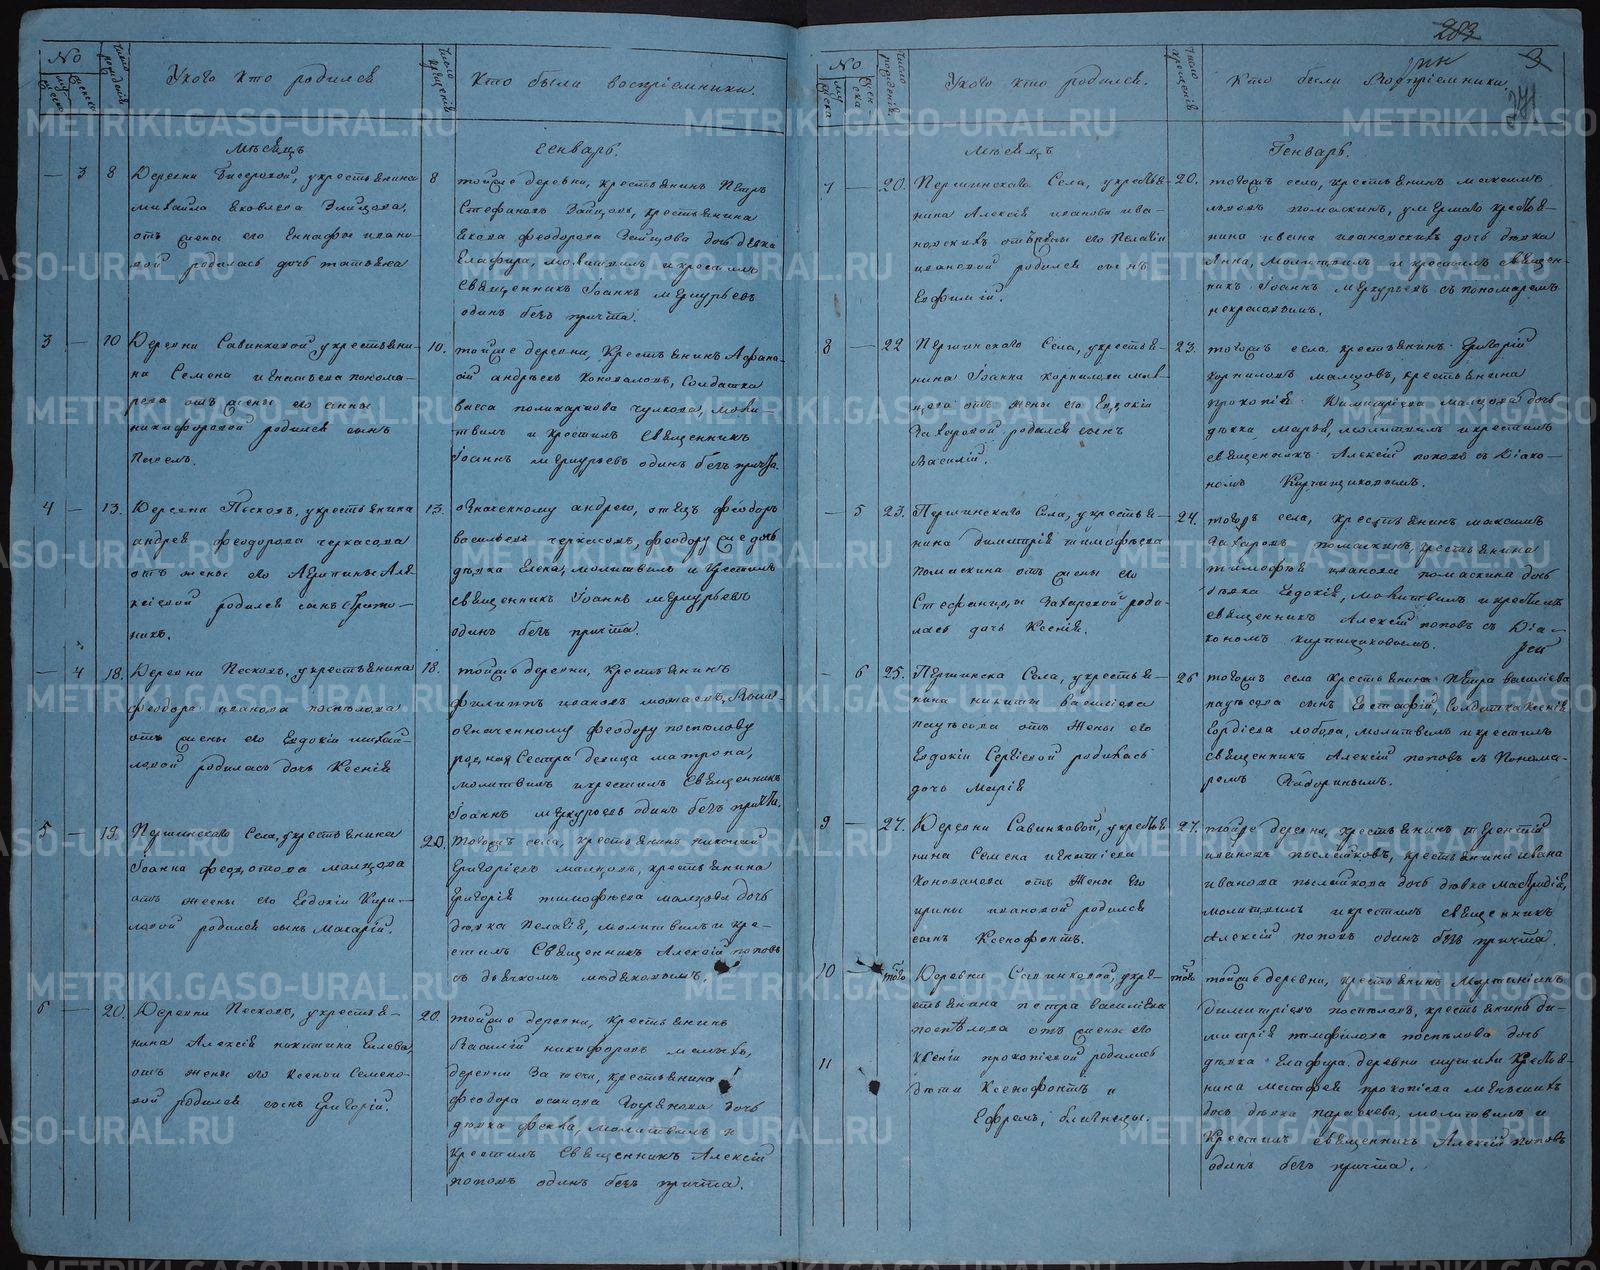 No
Число рожденія
У кого кто родился
Число крещенія
Кто были воспріемники.
Мѣсяцъ
Генварь.
3 8
Деревни Бисеровой, у крестьянина
Михайла Яковлева Зайцова,
отъ жены его
родилась дочь Татьяна
8
тойже деревни, крестьянинъ Петръ
Стефановъ Зайцовъ, крестьянина
Якова Феодорова Зайцова дочь дѣвка
Глафира, молитвилъ и крестилъ
Священникъ Іоаннъ Меркурьевъ
одинъ безъ причта.
3 10
Деревни Савинковой, у крестьяни-
на Семена Игнатьева Понома-
рева отъ жены его Анны
Никифоровой родился сынъ
Павелъ.
10.
тойже деревни, крестьянинъ Афана-
сій Андреевъ Коновалов, Солдатка
Васса Поликарпова Чулкова, моли-
твилъ и крестилъ Священникъ
Іоаннъ Меркурьевъ одинъ безъ причта.
4 13.
Деревни Песковъ, у крестьянина
Андрея Феодорова Черкасова
отъ жены его Агрипины Але-
ксіевой родился сынъ
13.
означенному Андрею, отецъ Феодоръ
Васильевъ Черкасовъ, Феодору же дочь
дѣвка Елена, молитвилъ и крестилъ
Священникъ Іоаннъ Меркурьевъ
одинъ безъ причта.
4 18.
Деревни Песковъ, у крестьянина
Феодора Иванова Поспѣлова
отъ жены его Евдокіи Михай-
ловой родилась дочь Ксенія
18.
тойже деревни, крестьянинъ
Филиппъ Ивановъ
означенному Феодору Поспѣлову
родная Сестра девица Матрона,
молитвилъ и крестилъ Священникъ
Іоаннъ Меркурьевъ одинъ безъ причта.
5 19.
Першинскаго Села, у крестьянина
Іоанна Федотова Малцова
отъ жены его Евдокіи Кири-
ловой родился сынъ Макарій.
20.
тогожъ села, крестьянинъ Николай
Григорьевъ Малцовъ, крестьянина
Григорія Тимофѣева Малцова дочь
дѣвка Пелагія, молитвилъ и кре-
стилъ Священникъ Алексій Поповъ
съ дьячкомъ
6 20.
Деревни Песковъ, у крестья-
нина Алексія Никитина
отъ жены его Ксеніи Семено-
вой родился сынъ Григорій.
20.
тойже деревни, крестьянинъ
Василій Никифоровъ
деревни крестьянина
Феодора Осипова дочь
дѣвка Фекла, молитвилъ и
крестилъ Священникъ Алексій
Поповъ одинъ безъ причта.
283
3
271
No
Число рожденія
У кого кто родился.
Число крещенія
Кто были Воспріемники.
Мѣсяцъ
Генварь.
7 20.
Першинскаго Села, у крестья-
нина Алексія Иванова Ива-
новскихъ отъ жены его Пелагіи
Ивановой родился сынъ
Евфимій.
20.
тогожъ села, крестьянинъ Максимъ
Львовъ Помаскинъ, умершаго крестья-
нина Ивана Ивановскихъ дочь дѣвка
Анна, молитвилъ и крестилъ Священ-
никъ Іоаннъ Меркурьевъ съ пономаремъ
Некрасовымъ.
8 22
Першинскаго Села, у крестья-
нина Іоанна Корнилова Мал-
цова отъ жены его Евдокіи
Захаровой родился сынъ
Василій.
23.
тогожъ села, крестьянинъ Григорій
Корниловъ Малцовъ, крестьянина
Прокопія Димитріева Малцова дочь
дѣвка Марья, молитвилъ и крестилъ
Священникъ Алексій Поповъ съ Діако-
номъ Кирпищиковымъ.
5 23.
Першинскаго Села, у крестья-
нина Димитрія Тимофѣева
Помаскина отъ жены его
Стефаниды Захаровой роди-
лась дочь Ксенія.
24.
тогожъ села, крестьянинъ Максимъ
Захаровъ Помаскинъ, крестьянина
Тимофѣя Иванова Помаскина дочь
дѣвка Евдокія, молитвилъ и крестилъ
Священникъ Алексій Поповъ съ Діа-
кономъ Кирпищиковымъ.
6 25.
Першинска Села, у крестья-
нина Никиты Василіева
отъ жены его
Евдокіи Сергіевой родилась
дочь Марія
26
тогожъ села крестьянина Петра Василіева
сынъ Евстафій, Солдатка Ксенія
Гордѣева Лобова, молитвилъ и крестилъ
Священникъ Алексій Поповъ съ Понома-
ремъ
9 27.
Деревни Савинковой, у крестья-
нина Семена Игнатіева
Коновалова отъ жены его
Ирины Ивановой родился
сынъ Ксенофонтъ.
27.
тойже деревни, крестьянинъ Терентій
Ивановъ крестьянина Ивана
Иванова дочь дѣвка
молитвилъ и крестилъ Священникъ
Алексій Поповъ одинъ безъ причта.
10 того
Деревни Савинковой, у кре-
стьянина Петра Василіева
Поспѣлова отъ жены его
11
Ксеніи Прокопіевой родились
дѣти Ксенофонтъ и
Ефремъ, близнецы.
того
тойже деревни, крестьянинъ
Димитріевъ Поспѣловъ, крестьянина Ди-
митрія Поспѣлова дочь
дѣвка Глафира. деревни крестья-
нина Матфея Прокопіева
дочь дѣвка Параскева, молитвилъ и
крестилъ Священникъ Алексій Поповъ
одинъ безъ причта.
METRIKI.GASO-URAL.RU